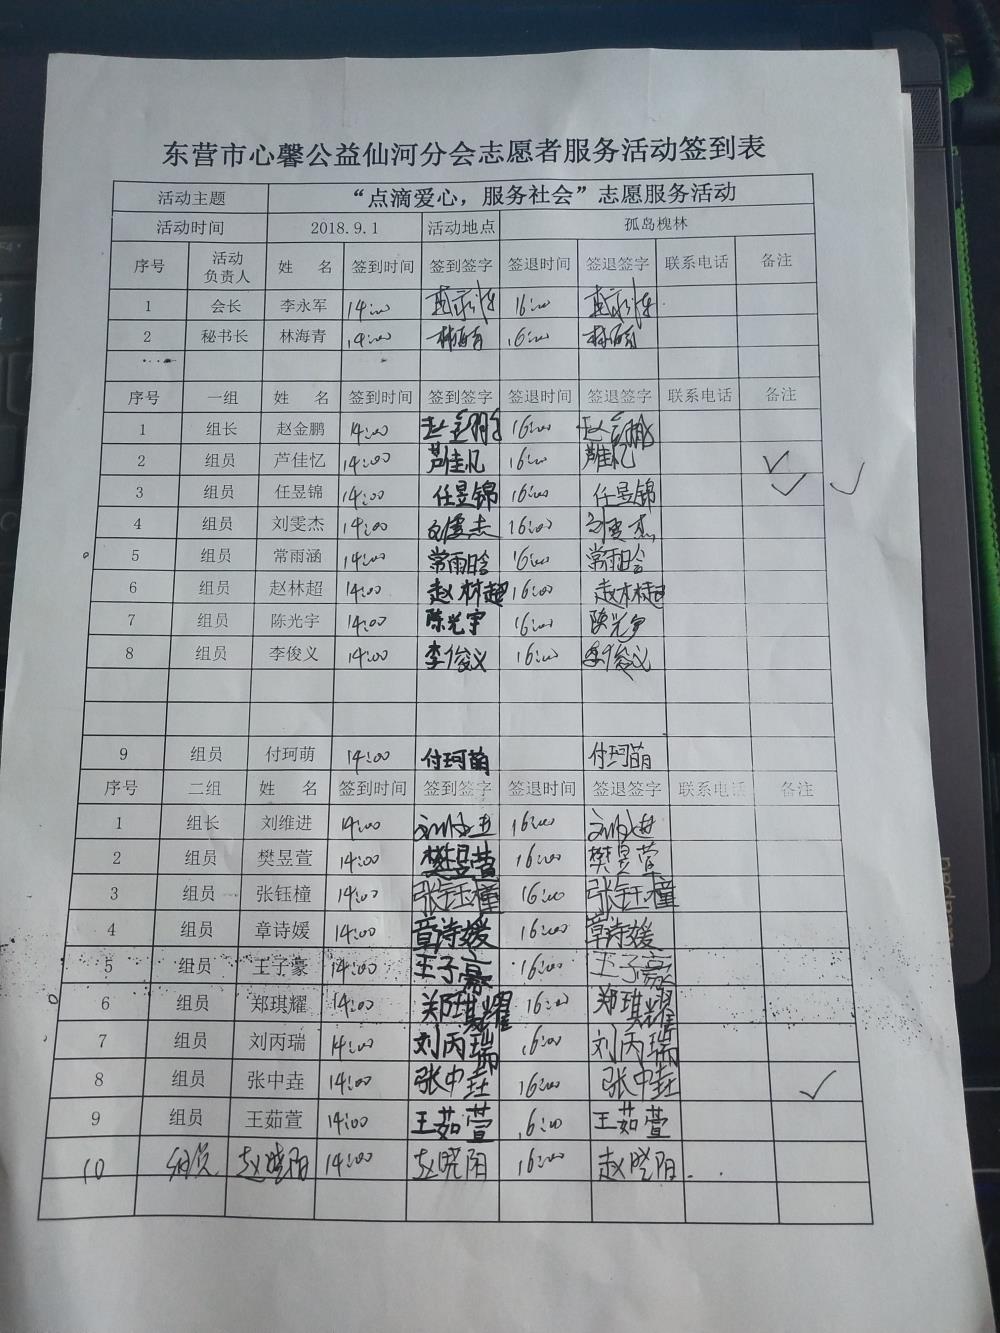 东营市心馨公益仙河分会志愿者服务活动签到表
活动主题 “点滴爱心，服务社会”志愿服务活动
活动时间 2018.9.1 活动地点 孤岛槐林
序号 活动负责人 姓 名 签到时间 签到签字 签退时间 签退签字 联系电话 备注
1 会长 李永军 14:00 16:00
2 秘书长 林海青 14:00 林海青 16:00 林海青
序号 一组 姓 名 签到时间 签到签字 签退时间 签退签字 联系电话 备注
1 组长 赵金鹏 14:00 赵金鹏 16:00 赵金鹏
2 组员 芦佳忆 14:00 芦佳忆 16:00 芦佳忆 ✓
3 组员 任昱锦 14:00 任昱锦 16:00 任昱锦 ✓ ✓
4 组员 刘雯杰 14:00 刘雯杰 16:00 刘雯杰
5 组员 常雨涵 14:00 常雨晗 16:00 常雨晗
6 组员 赵林超 14:00 赵林超 16:00 赵林超
7 组员 陈光宇 14:00 陈光宇 16:00 陈光宇
8 组员 李俊义 14:00 李俊义 16:00 李俊义
9 组员 付珂萌 14:00 付珂萌 付珂萌
序号 二组 姓 名 签到时间 签到签字 签退时间 签退签字 联系电话 备注
1 组长 刘维进 14:00 刘维进 16:00 刘维进
2 组员 樊昱萱 14:00 樊昱萱 16:00 樊昱萱
3 组员 张钰橦 14:00 张钰橦 16:00 张钰橦
4 组员 章诗媛 14:00 章诗媛 16:00 章诗媛
5 组员 王子豪 14:00 王子豪 16:00 王子豪
6 组员 郑琪耀 14:00 郑琪耀 16:00 郑琪耀
7 组员 刘丙瑞 14:00 刘丙瑞 16:00 刘丙瑞
8 组员 张中垚 14:00 张中垚 16:00 张中垚 ✓
9 组员 王茹萱 14:00 王茹萱 16:00 王茹萱
10 组员 赵晓阳 14:00 赵晓阳 16:00 赵晓阳